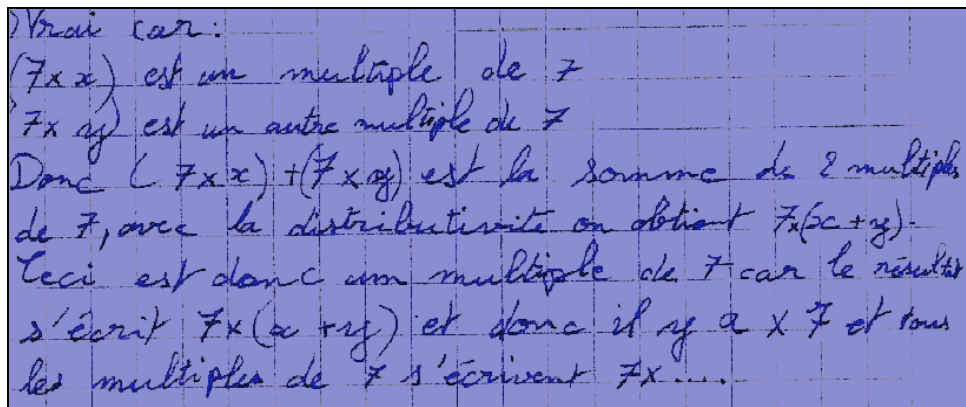 ) Vrai car :
(7 x x) est un multiple de 7
(7 x y) est un autre multiple de 7
Donc (7 x x) + (7 x y) est la somme de 2 multiples
de 7, avec la distributivité on obtient 7x(x + y).
Ceci est donc um multiple de 7 car le résultat
s'écrit 7x(x + y) et donc il y a x 7 et tous
les multiples de 7 s'écrivent 7x .....